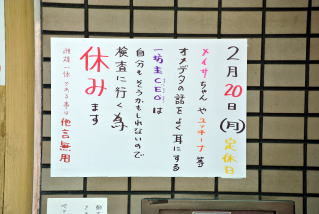 2月20日(月)定休日
メイサちゃんやユッチーナ等
オメデタの話をよく耳にする
一坊主CEOは
自分もそうかもしれないので
検査に行く為
休みます
他言無用